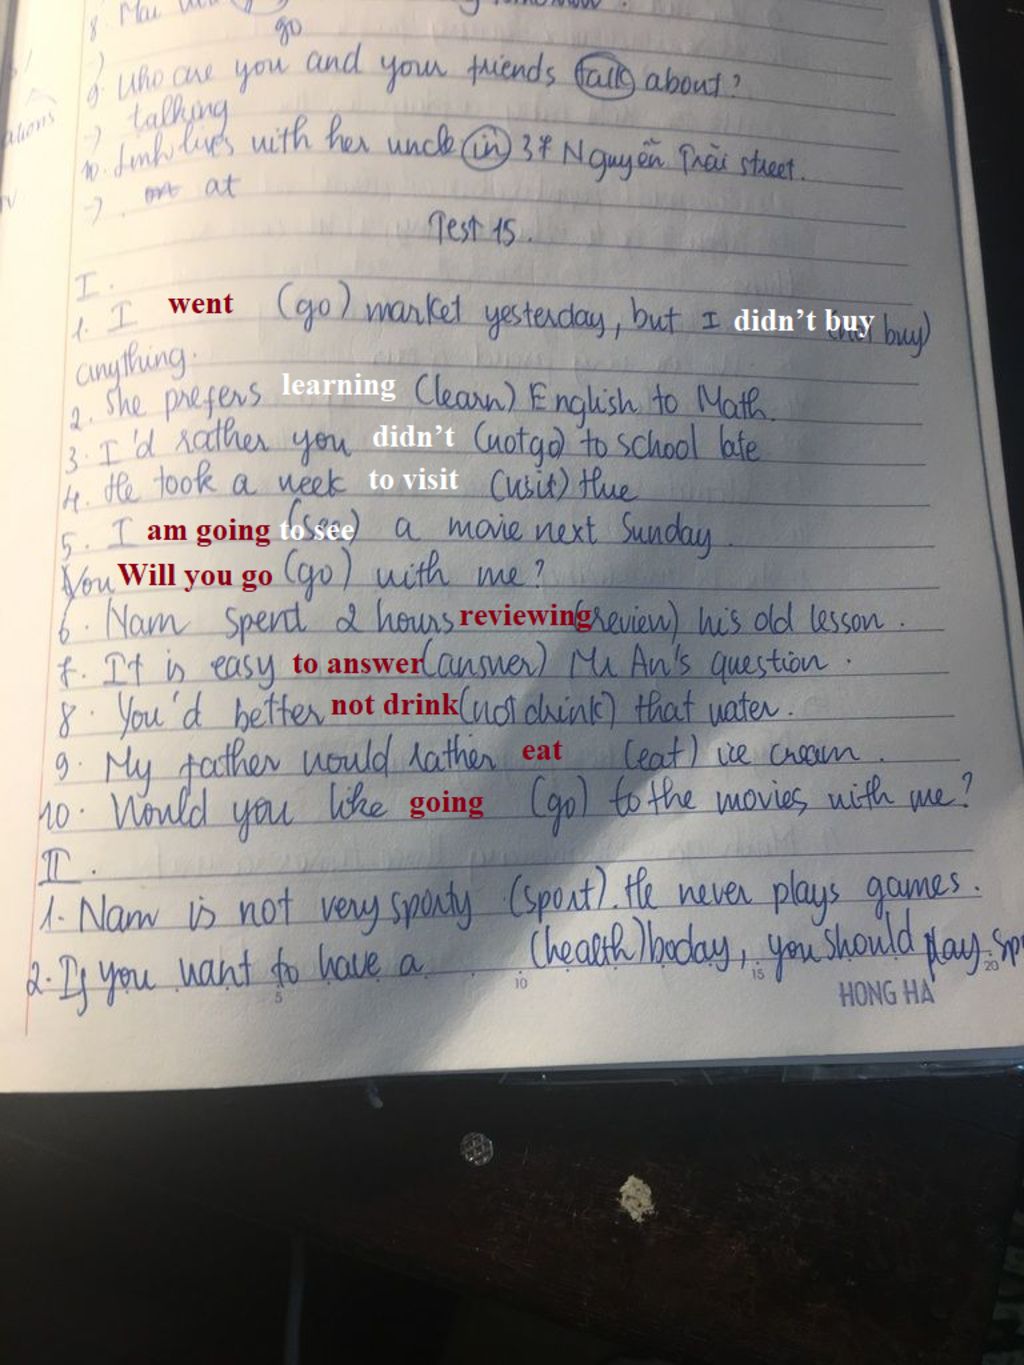 8. Mai
go
9. Who are you and your friends talk about?
-) talking
10. Linh lives with her uncle in 37 Nguyễn Trãi street.
-). at
Test 15.
I.
1. I went (go) market yesterday, but I didn't buy buy)
anything.
2. She prefers learning (learn) English to Math.
3. I'd rather you didn't (not go) to school late
4. He took a week to visit (visit) Hue
5. I am going to see (see) a movie next Sunday.
You Will you go (go) with me?
6. Nam spent 2 hours reviewing (review) his old lesson.
7. It is easy to answer (answer) Mr An's question.
8. You'd better not drink (not drink) that water.
9. My father would rather eat (eat) ice cream.
10. Would you like going (go) to the movies with me?
II.
1. Nam is not very sporty (sport). He never plays games.
2. If you want to have a (health) boday, you should play
5 10 15 20
HONG HA